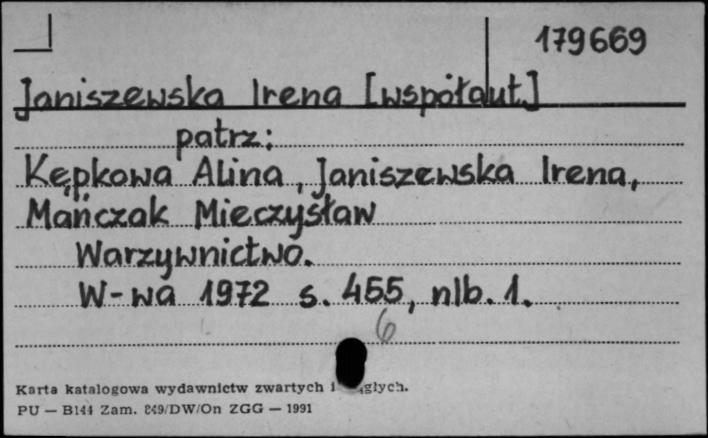 179669
Janiszewska Irena [współaut.]
patrz:
Kępkowa Alina, Janiszewska Irena,
Mańczak Mieczysław
Warzywnictwo.
W-wa 1972 s. 455, nlb. 1.
6
Karta katalogowa wydawnictw zwartych i
PU — B144 Zam. 849/DW/On ZGG — 1991